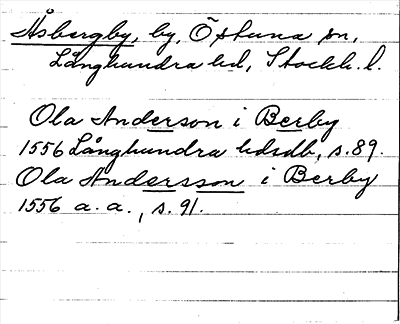 Åsbergby, by, Östuna sn,
Långhundra hd, Stockh. l.
Ola Anderson i Berby
1556 Långhundra hdsdb, s. 89.
Ola Andersson i Berby
1556 a. a., s. 91.